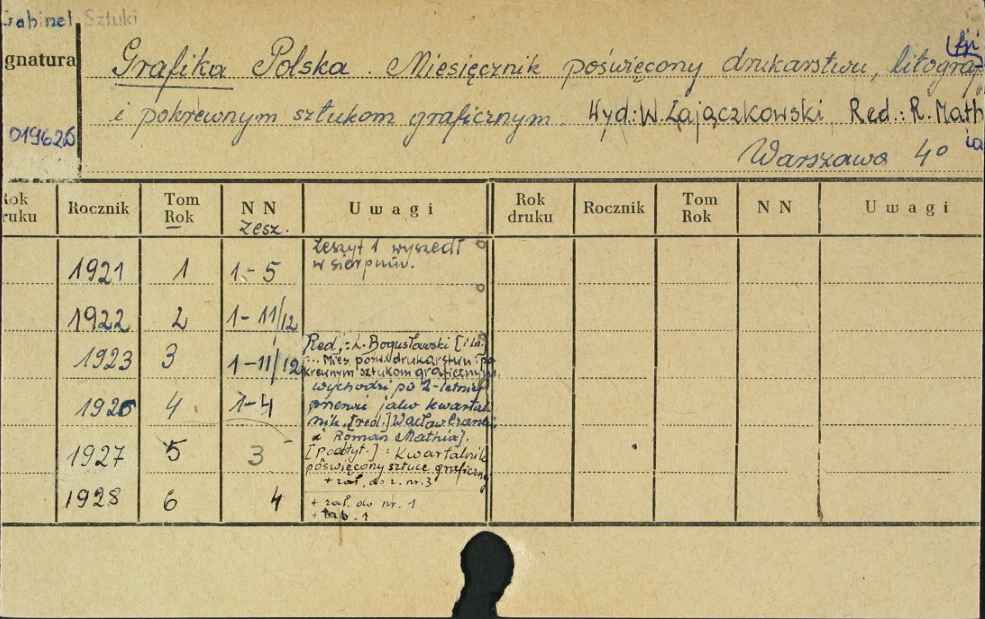 Gabinet Sztuki
gnatura
Grafika Polska. Miesięcznik poświęcony drukarstwu, litograf
ji
i pokrewnym sztukom graficznym. Wyd: W. Łajączkowski Red.: R. Math
ia
019626
Warszawa 4°
Rok druku Rocznik Tom Rok NN zesz. Uwagi Rok druku Rocznik Tom Rok NN Uwagi
1921 1 1-5 Zeszyt 1 wyszedł
w sierpniu.
1922 2 1-11/12
1923 3 1-11/12 Red.: L. Bogusławski [i in.
... Mies. pośw. drukarstwu i po
krewnym sztukom graficznym.
wychodzi po 2-letniej
1926 4 1-4 przerwie jako kwartal
nik, [red.] Wacław
i Roman Mathia].
1927 5 3 [Podtyt.]: Kwartalnik
poświęcony sztuce graficznej
+ zał. do z. nr. 3
1928 6 4 + zał. do nr. 1
+ tab. 1